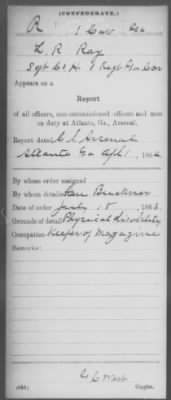 (CONFEDERATE.)
R 1 Cav Ga
L. R. Ray
Sgt Co H. 1 Regt Ga Cav
Appears on a
Report
of all officers, non-commissioned officers and men
on duty at Atlanta, Ga., Arsenal.
Report dated C. S. Arsenal
Atlanta Ga Apl 1, 1864
By whose order assigned
By whom detailed Gen Buckner
Date of order July 18, 1863.
Grounds of detail Physical disability
Occupation Keeper of Magazine
Remarks:
G. C. West
Copyist.